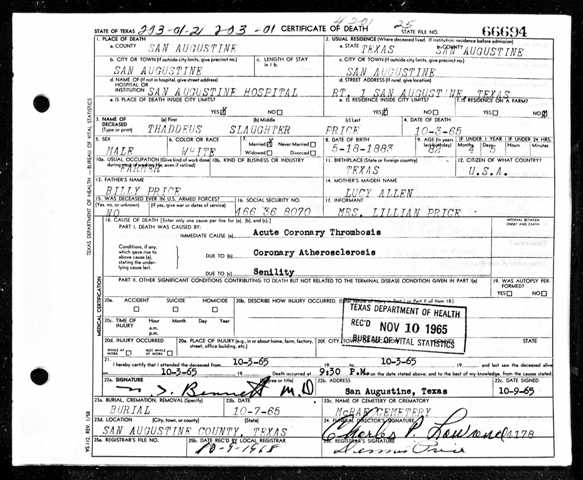 4201 25
STATE OF TEXAS 203-01-21 203-01 CERTIFICATE OF DEATH STATE FILE NO. 66694
1. PLACE OF DEATH
a. COUNTY SAN AUGUSTINE
2. USUAL RESIDENCE (Where deceased lived. If institution: residence before admission)
a. STATE TEXAS b. COUNTY SAN AUGUSTINE
b. CITY OR TOWN (If outside city limits, give precinct no.) c. LENGTH OF STAY in 1 b.
SAN AUGUSTINE
c. CITY OR TOWN (If outside city limits, give precinct no.)
SAN AUGUSTINE
d. NAME OF (If not in hospital, give street address) HOSPITAL OR INSTITUTION SAN AUGUSTINE HOSPITAL
d. STREET ADDRESS (If rural, give location)
RT. 1 SAN AUGUSTINE, TEXAS
e. IS PLACE OF DEATH INSIDE CITY LIMITS? YES NO
e. IS RESIDENCE INSIDE CITY LIMITS? YES NO
f. IS RESIDENCE ON A FARM? YES NO
3. NAME OF DECEASED (Type or print) (a) First (b) Middle (c) Last
THADDEUS SLAUGHTER PRICE
4. DATE OF DEATH
10-3-65
5. SEX MALE
6. COLOR OR RACE WHITE
7. Married Never Married Widowed Divorced
8. DATE OF BIRTH 5-18-1883
9. AGE 82
IF UNDER 1 YEAR IF UNDER 24 HRS.
10a. USUAL OCCUPATION (Give kind of work done FARMER
10b. KIND OF BUSINESS OR INDUSTRY
11. BIRTHPLACE (State or foreign country) TEXAS
12. CITIZEN OF WHAT COUNTRY? U.S.A.
13. FATHER'S NAME BILLY PRICE
14. MOTHER'S MAIDEN NAME LUCY ALLEN
15. WAS DECEASED EVER IN U.S. ARMED FORCES? (Yes, no, or unknown) (If yes, give war or dates of service) NO
16. SOCIAL SECURITY NO. 466 36 8070
17. INFORMANT MRS. LILLIAN PRICE
18. CAUSE OF DEATH [Enter only one cause per line for (a), (b), and (c).] INTERVAL BETWEEN ONSET AND DEATH
PART I. DEATH WAS CAUSED BY:
IMMEDIATE CAUSE (a) Acute Coronary Thrombosis
Conditions, if any, which gave rise to above cause (a), stating the underlying cause last.
DUE TO (b) Coronary Atherosclerosis
DUE TO (c) Senility
PART II. OTHER SIGNIFICANT CONDITIONS CONTRIBUTING TO DEATH BUT NOT RELATED TO THE TERMINAL DISEASE CONDITION GIVEN IN PART I(a)
19. WAS AUTOPSY PERFORMED? YES NO
20a. ACCIDENT SUICIDE HOMICIDE
20b. DESCRIBE HOW INJURY OCCURRED.
20c. TIME OF INJURY Hour Month Day Year a.m. p.m.
20d. INJURY OCCURRED WHILE AT WORK NOT WHILE AT WORK
20e. PLACE OF INJURY (e.g., in or about home, farm, factory, street, office building, etc.)
20f. CITY, TOWN STATE
TEXAS DEPARTMENT OF HEALTH
REC'D NOV 10 1965
BUREAU OF VITAL STATISTICS
21. I hereby certify that I attended the deceased from 10-3-65
10-3-65 Death occurred at 9:30 P.M. on the date stated above, and to the best of my knowledge, from the causes stated
22a. SIGNATURE Bennett M.D
22b. ADDRESS San Augustine, Texas
22c. DATE SIGNED 10-9-65
23a. BURIAL, CREMATION, REMOVAL (Specify) BURIAL
23b. DATE 10-7-65
23c. NAME OF CEMETERY OR CREMATORY McRAE CEMETERY
23d. LOCATION (City, town, or county) (State)
SAN AUGUSTINE COUNTY, TEXAS
24. FUNERAL DIRECTOR'S SIGNATURE
Charles P. 4178
25a. REGISTRAR'S FILE NO.
25b. DATE REC'D BY LOCAL REGISTRAR
25c. REGISTRAR'S SIGNATURE
Price
TEXAS DEPARTMENT OF HEALTH—BUREAU OF VITAL STATISTICS
MEDICAL CERTIFICATION